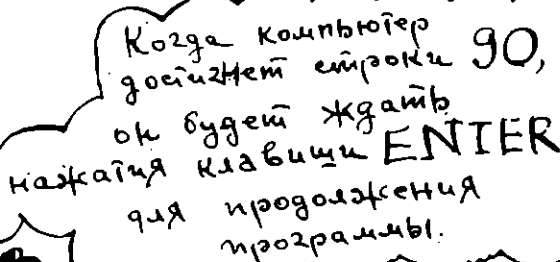 Когда компьютер
достигнет строки 90,
он будет ждать
нажатия клавиши ENTER
для продолжения
программы.